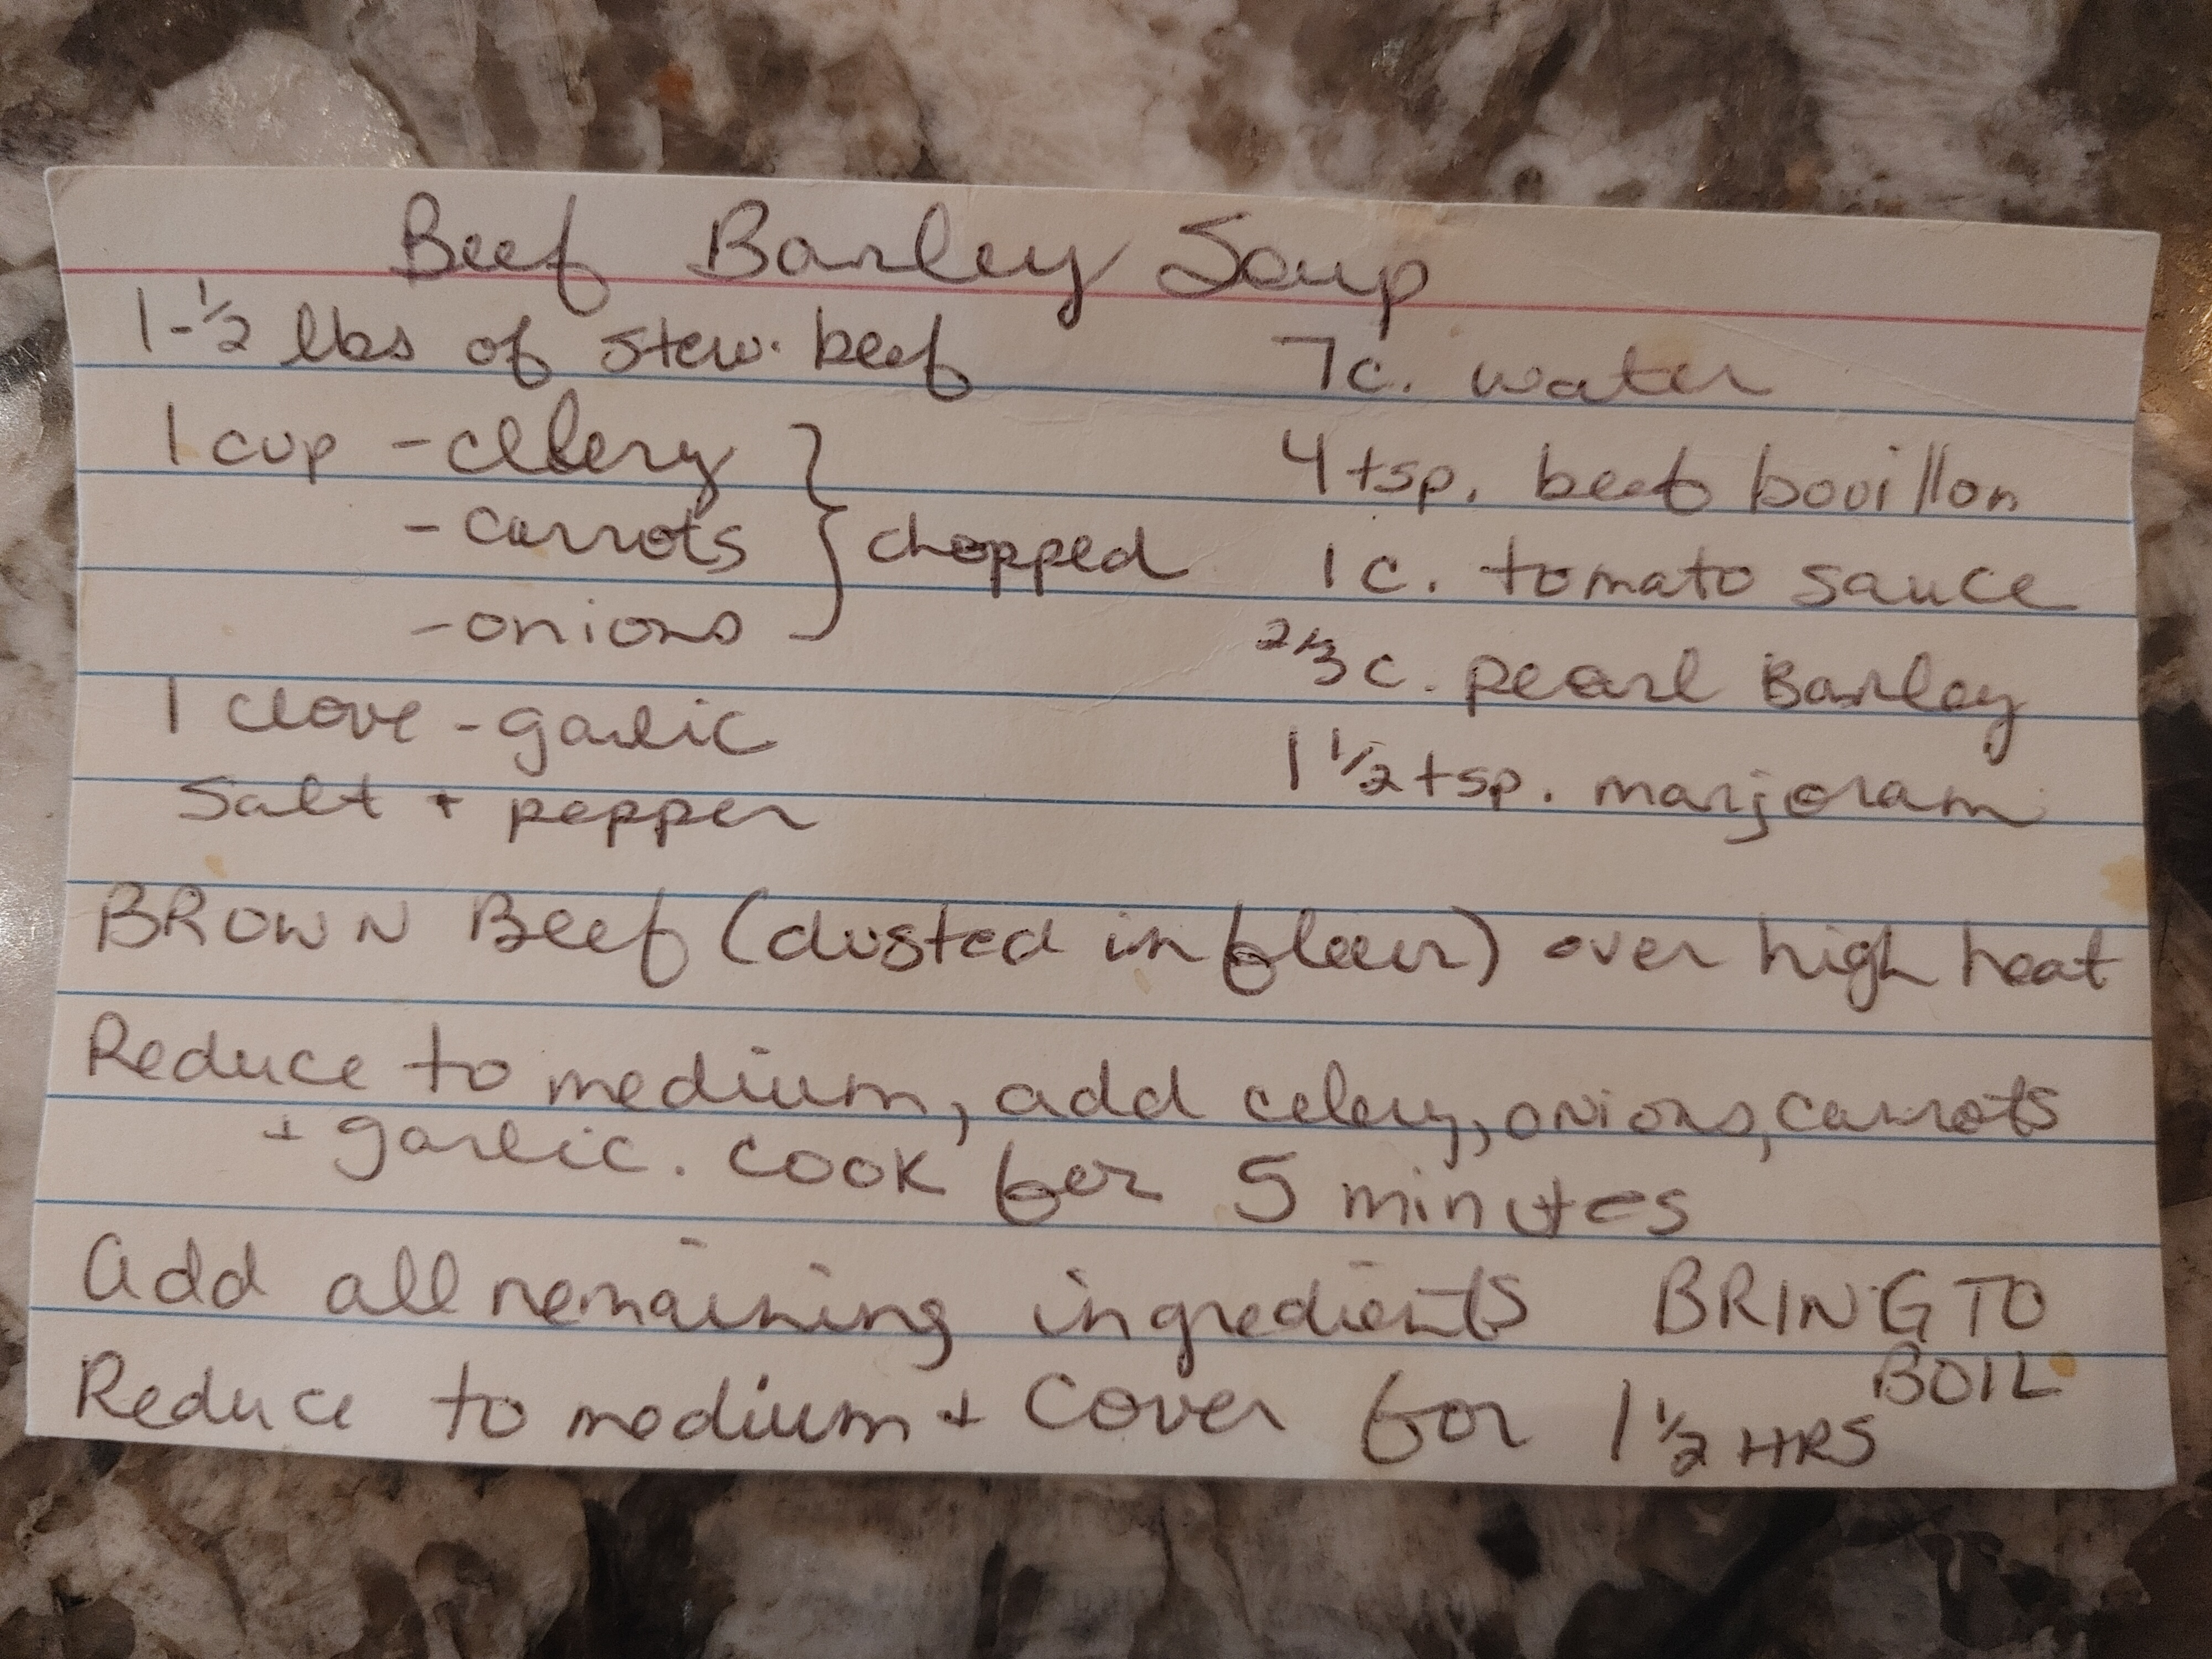 Beef Barley Soup
1-1/2 lbs of stew beef
1 cup - celery
- carrots
- onions
} chopped
1 clove - garlic
Salt + pepper
7c. water
4 tsp. beef bouillon
1 c. tomato sauce
2/3 c. pearl Barley
1 1/2 tsp. marjoram
BROWN Beef (dusted in flour) over high heat
Reduce to medium, add celery, onions, carrots
+ garlic. cook for 5 minutes
Add all remaining ingredients BRING TO
BOIL
Reduce to medium + cover for 1 1/2 HRS